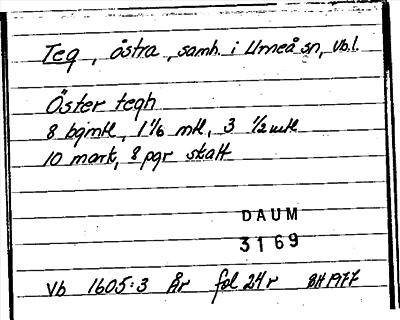 Teg, östra, samh. i Umeå sn, Vb.l.
Öster tegh
8 bgmtl, 1 1/6 mtl, 3 1/2 mtl
10 mark, 8 pgr skatt
DAUM
3169
Vb 1605:3 År fol 24 r BH 1977